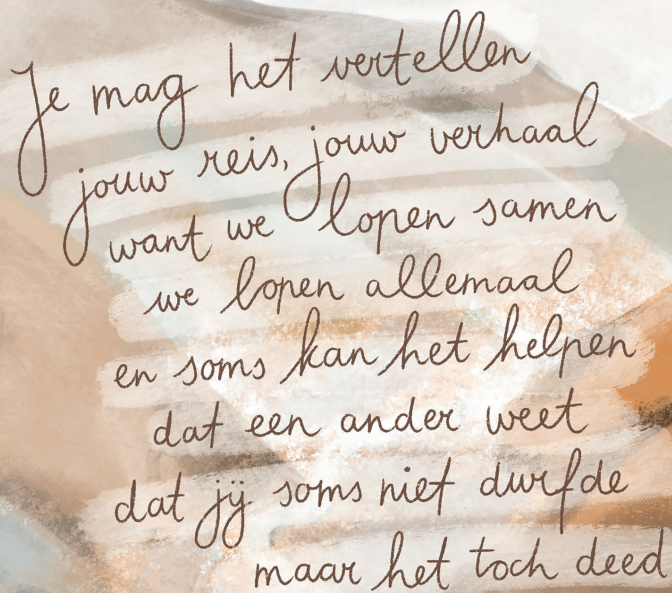 Je mag het vertellen
jouw reis, jouw verhaal
want we lopen samen
we lopen allemaal
en soms kan het helpen
dat een ander weet
dat jij soms niet durfde
maar het toch deed